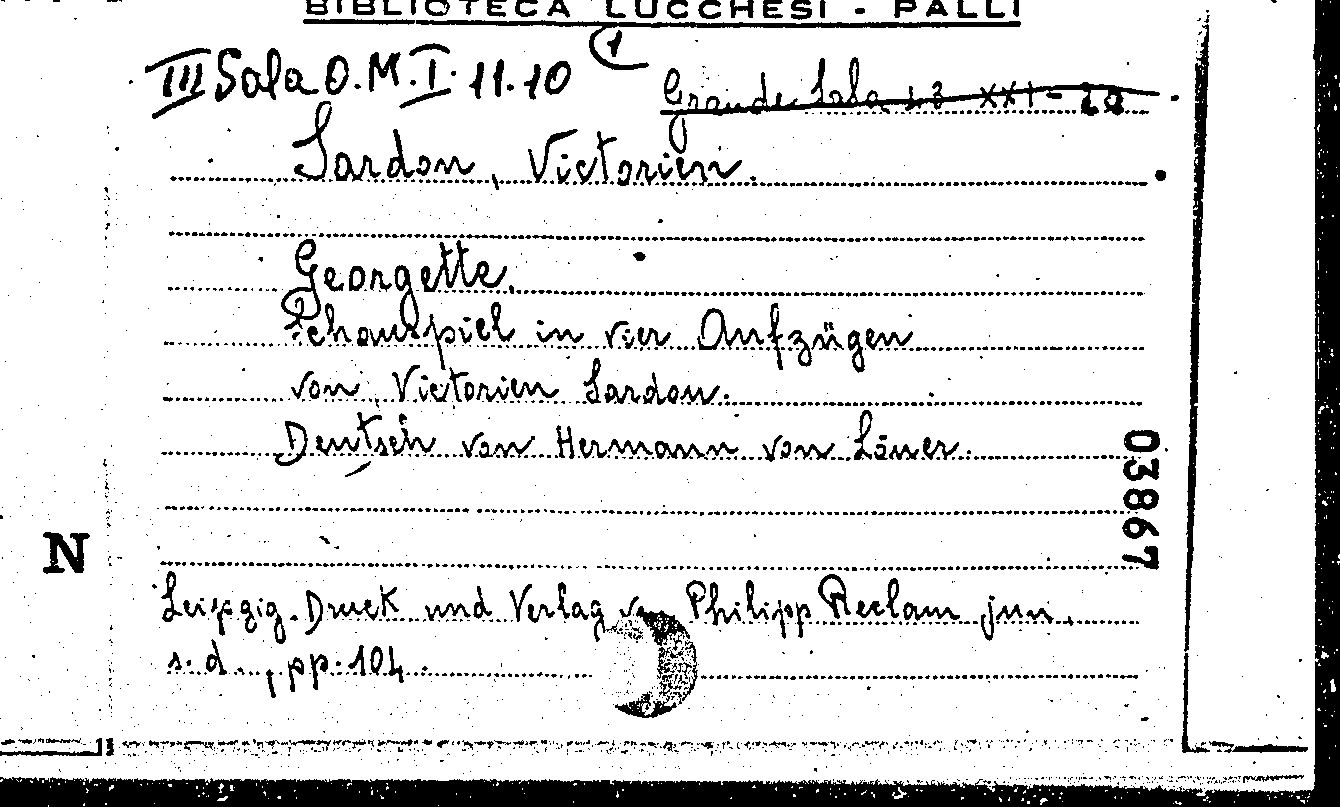 BIBLIOTECA LUCCHESI - PALLI
III Sala O.M.I. 11.10 (1
Grande Sala 13 XXI-
Sardou, Victorien.
Georgette.
Schauspiel in vier Aufzügen
von Victorien Sardou.
Deutsch von Hermann von Löner.
03867
N
Leipzig. Druck und Verlag von Philipp Reclam jun.
s. d., pp. 104.
13